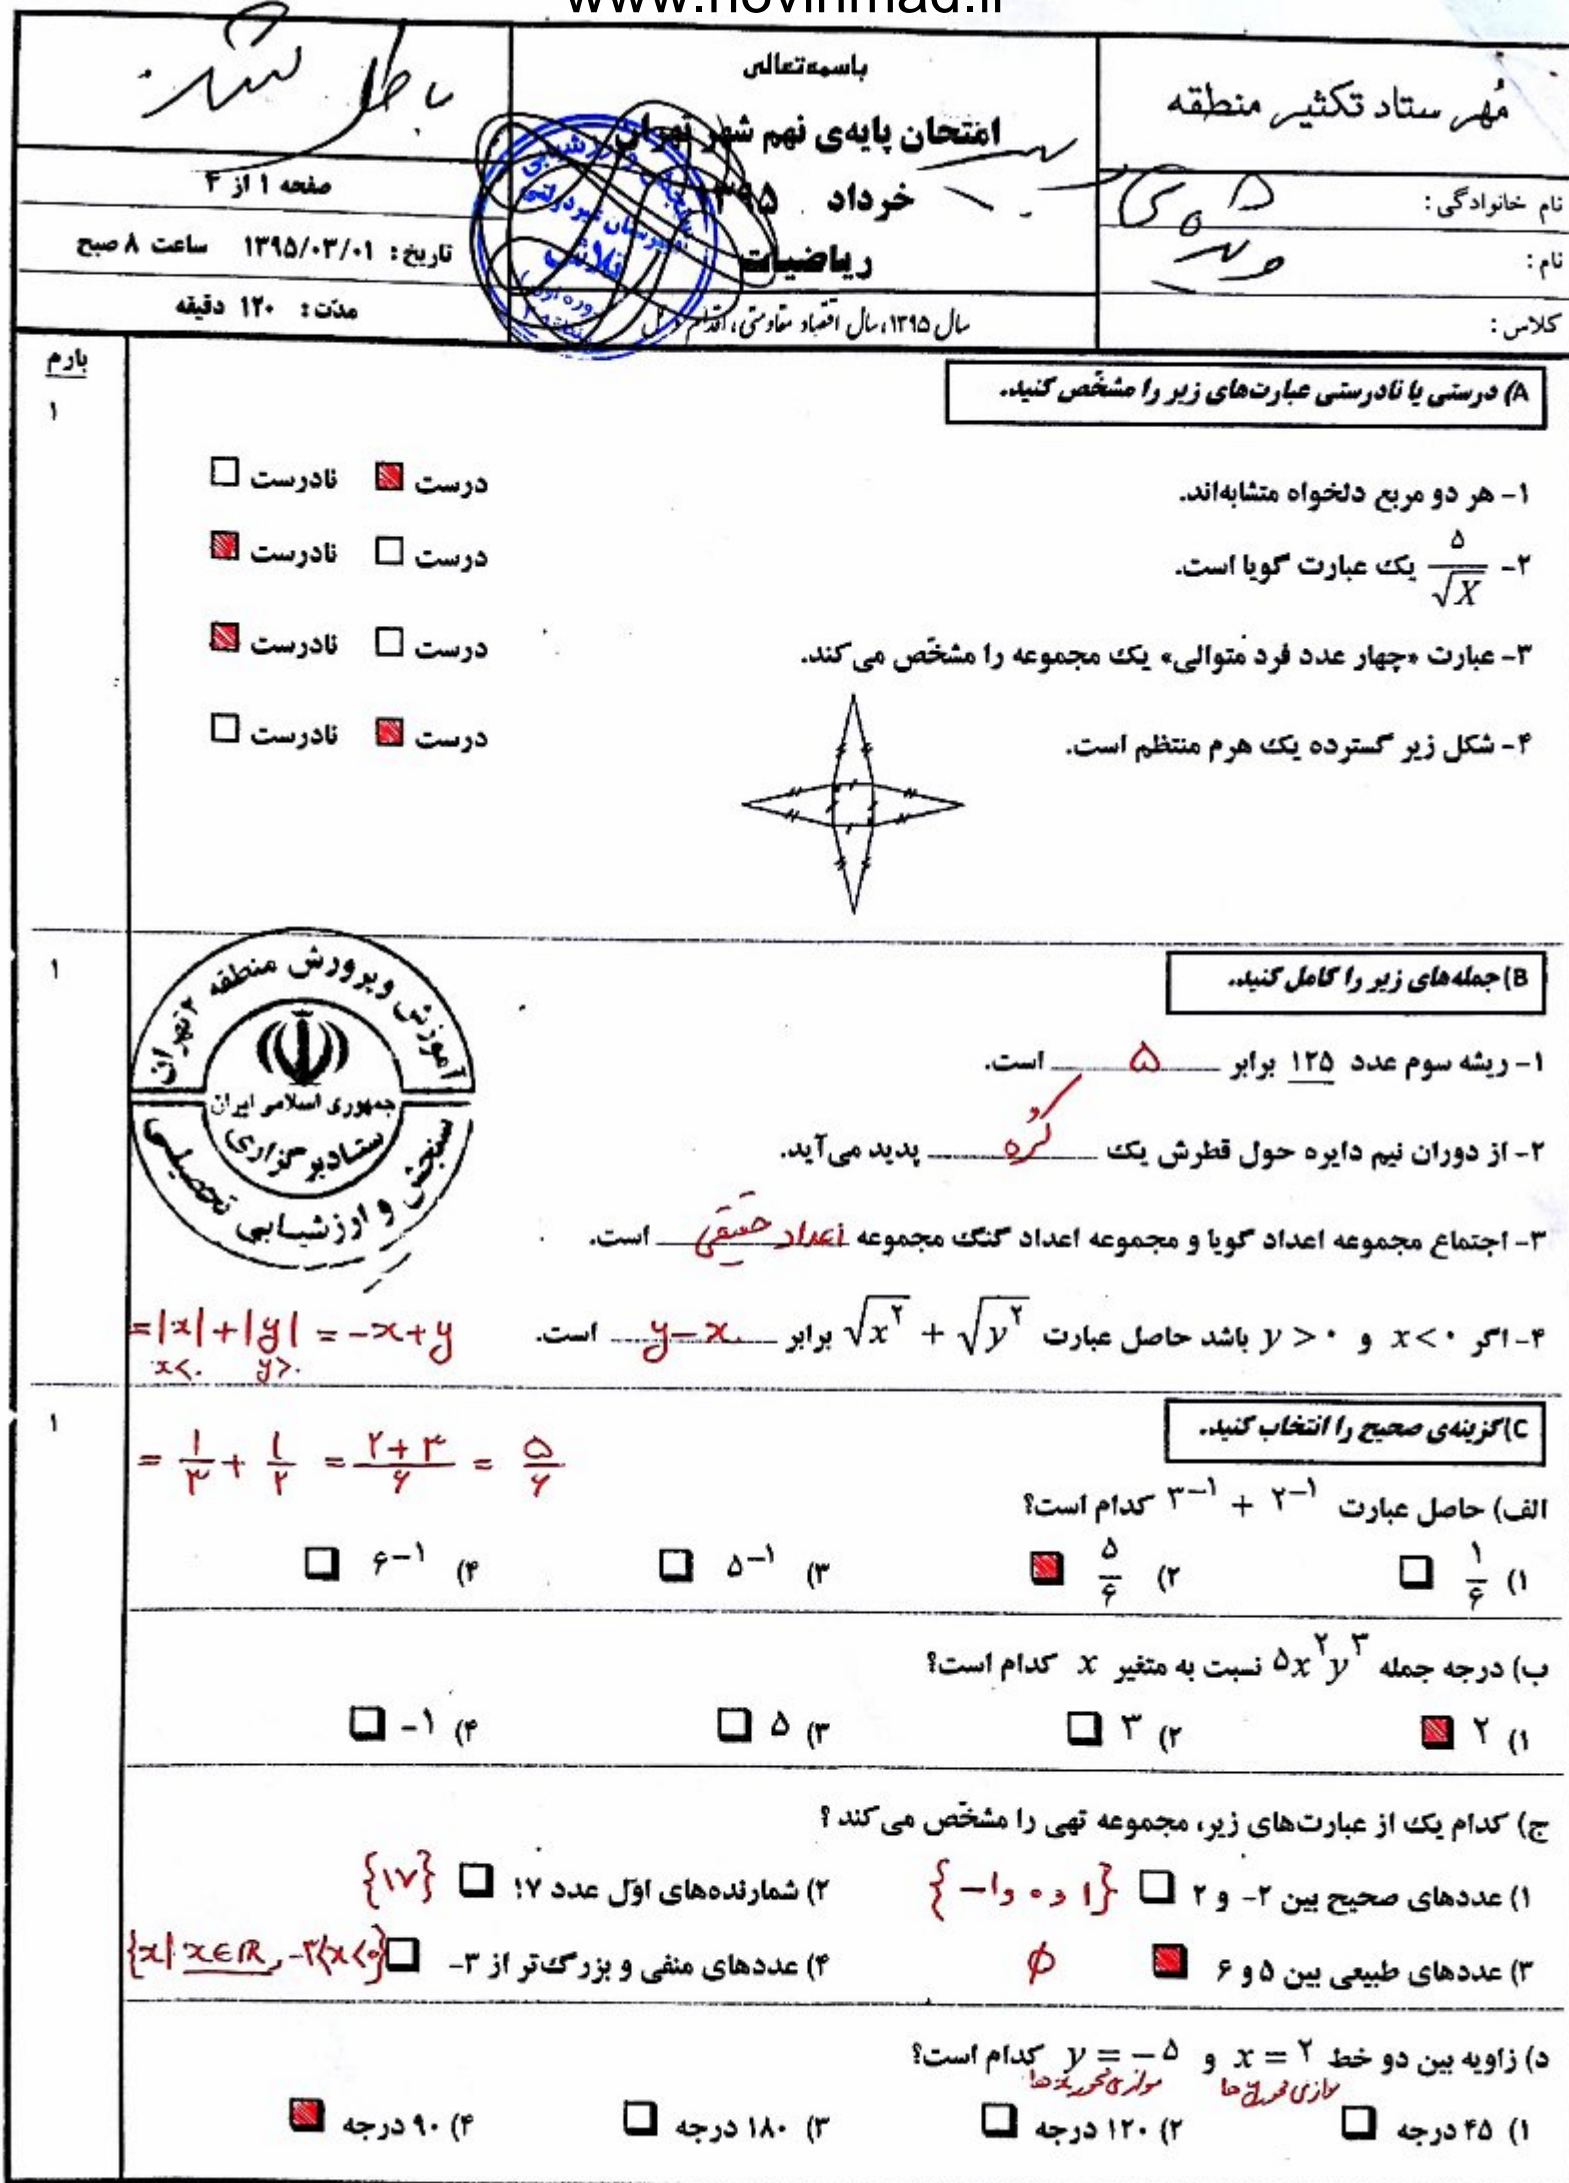 www.novinmad.ir
باسمه‌تعالی
امتحان پایه‌ی نهم شهر تهران
خرداد ۱۳۹۵
ریاضیات
سال ۱۳۹۵، سال اقتصاد مقاومتی، اقدام و عمل
مُهر ستاد تکثیر منطقه
نام خانوادگی:
نام:
کلاس:
باطل شد.
صفحه ۱ از ۴
تاریخ: ۱۳۹۵/۰۳/۰۱ ساعت ۸ صبح
مدّت: ۱۲۰ دقیقه
بارم
A) درستی یا نادرستی عبارت‌های زیر را مشخّص کنید.
۱
۱- هر دو مربع دلخواه متشابه‌اند. درست نادرست
۲- ۵/√X یک عبارت گویا است. درست نادرست
۳- عبارت «چهار عدد فرد متوالی» یک مجموعه را مشخّص می‌کند. درست نادرست
۴- شکل زیر گسترده یک هرم منتظم است. درست نادرست
B) جمله‌های زیر را کامل کنید.
۱
آموزش و پرورش منطقه ۲ تهران
جمهوری اسلامی ایران
ستاد برگزاری
سنجش و ارزشیابی تحصیلی
۱- ریشه سوم عدد ۱۲۵ برابر ۵ است.
۲- از دوران نیم دایره حول قطرش یک کُره پدید می‌آید.
۳- اجتماع مجموعه اعداد گویا و مجموعه اعداد گنگ مجموعه اعداد حقیقی است.
۴- اگر x<۰ و y>۰ باشد حاصل عبارت √x² + √y² برابر y-x است. =|x|+|y| = -x+y
x<. y>.
C) گزینه‌ی صحیح را انتخاب کنید.
۱
= ۱/۳ + ۱/۲ = ۲+۳/۶ = ۵/۶
الف) حاصل عبارت ۳⁻¹ + ۲⁻¹ کدام است؟
۱) ۱/۶ ۲) ۵/۶ ۳) ۵⁻¹ ۴) ۶⁻¹
ب) درجه جمله ۵x²y³ نسبت به متغیر x کدام است؟
۱) ۲ ۲) ۳ ۳) ۵ ۴) -۱
ج) کدام یک از عبارت‌های زیر، مجموعه تهی را مشخّص می‌کند ؟
۱) عددهای صحیح بین ۲- و ۲ {-۱ و ۰ و ۱} ۲) شمارنده‌های اوّل عدد ۱۷ {۱۷}
۳) عددهای طبیعی بین ۵ و ۶ ∅ ۴) عددهای منفی و بزرگ‌تر از ۳- {x| x∈R, -۳<x<۰}
د) زاویه بین دو خط x = ۲ و y = -۵ کدام است؟
موازی محور yها موازی محور xها
۱) ۴۵ درجه ۲) ۱۲۰ درجه ۳) ۱۸۰ درجه ۴) ۹۰ درجه